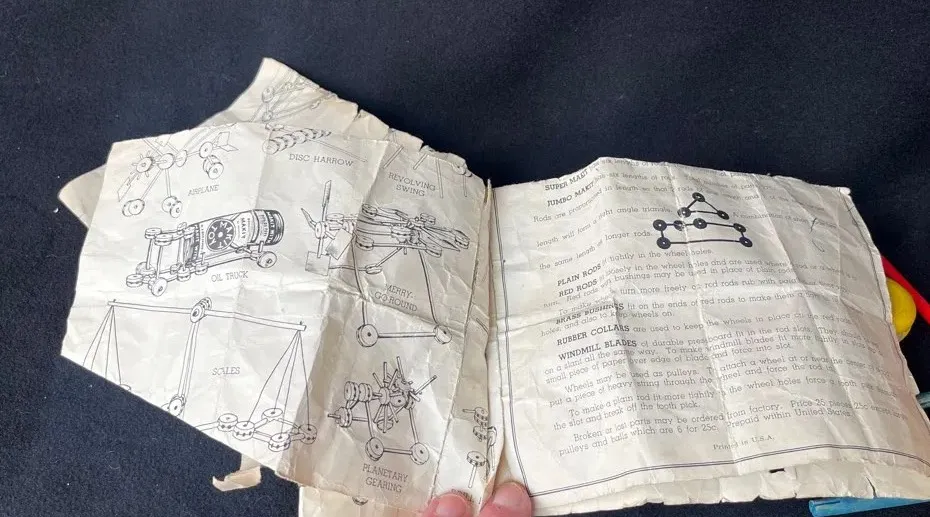 AIRPLANE
DISC HARROW
REVOLVING
SWING
OIL TRUCK
MERRY-
GO-ROUND
SCALES
PLANETARY
GEARING
SUPER MAKIT
JUMBO MAKIT has six lengths of rods.
Rods are proportioned in length so that 2 rods
length will form a right angle triangle. A combination of short
the same length of longer rods.
PLAIN RODS fit tightly in the wheel holes.
RED RODS fit loosely in the wheel holes and are used where
turn. Red rods with bushings may be used in place of plain rods.
To make turn more freely oil rods
BRASS BUSHINGS fit on the ends of red rods to make them fit
holes, and also to keep wheels on.
RUBBER COLLARS are used to keep the wheels in place on the red rods.
WINDMILL BLADES of durable pressboard fit in the rod slots. They should
on a slant all the same way. To make windmill blades fit more tightly in slot
small piece of paper over edges of blade and force into slot.
Wheels may be used as pulleys. To attach a wheel at or near the center of
put a piece of heavy string through the wheel and force the rod
To make a plain rod fit more tightly in the wheel holes force a tooth pick
the slot and break off the tooth pick.
Broken or lost parts may be ordered from factory. Price 25 pieces 25c except
pulleys and balls which are 6 for 25c. Prepaid within United States.
Printed in U.S.A.